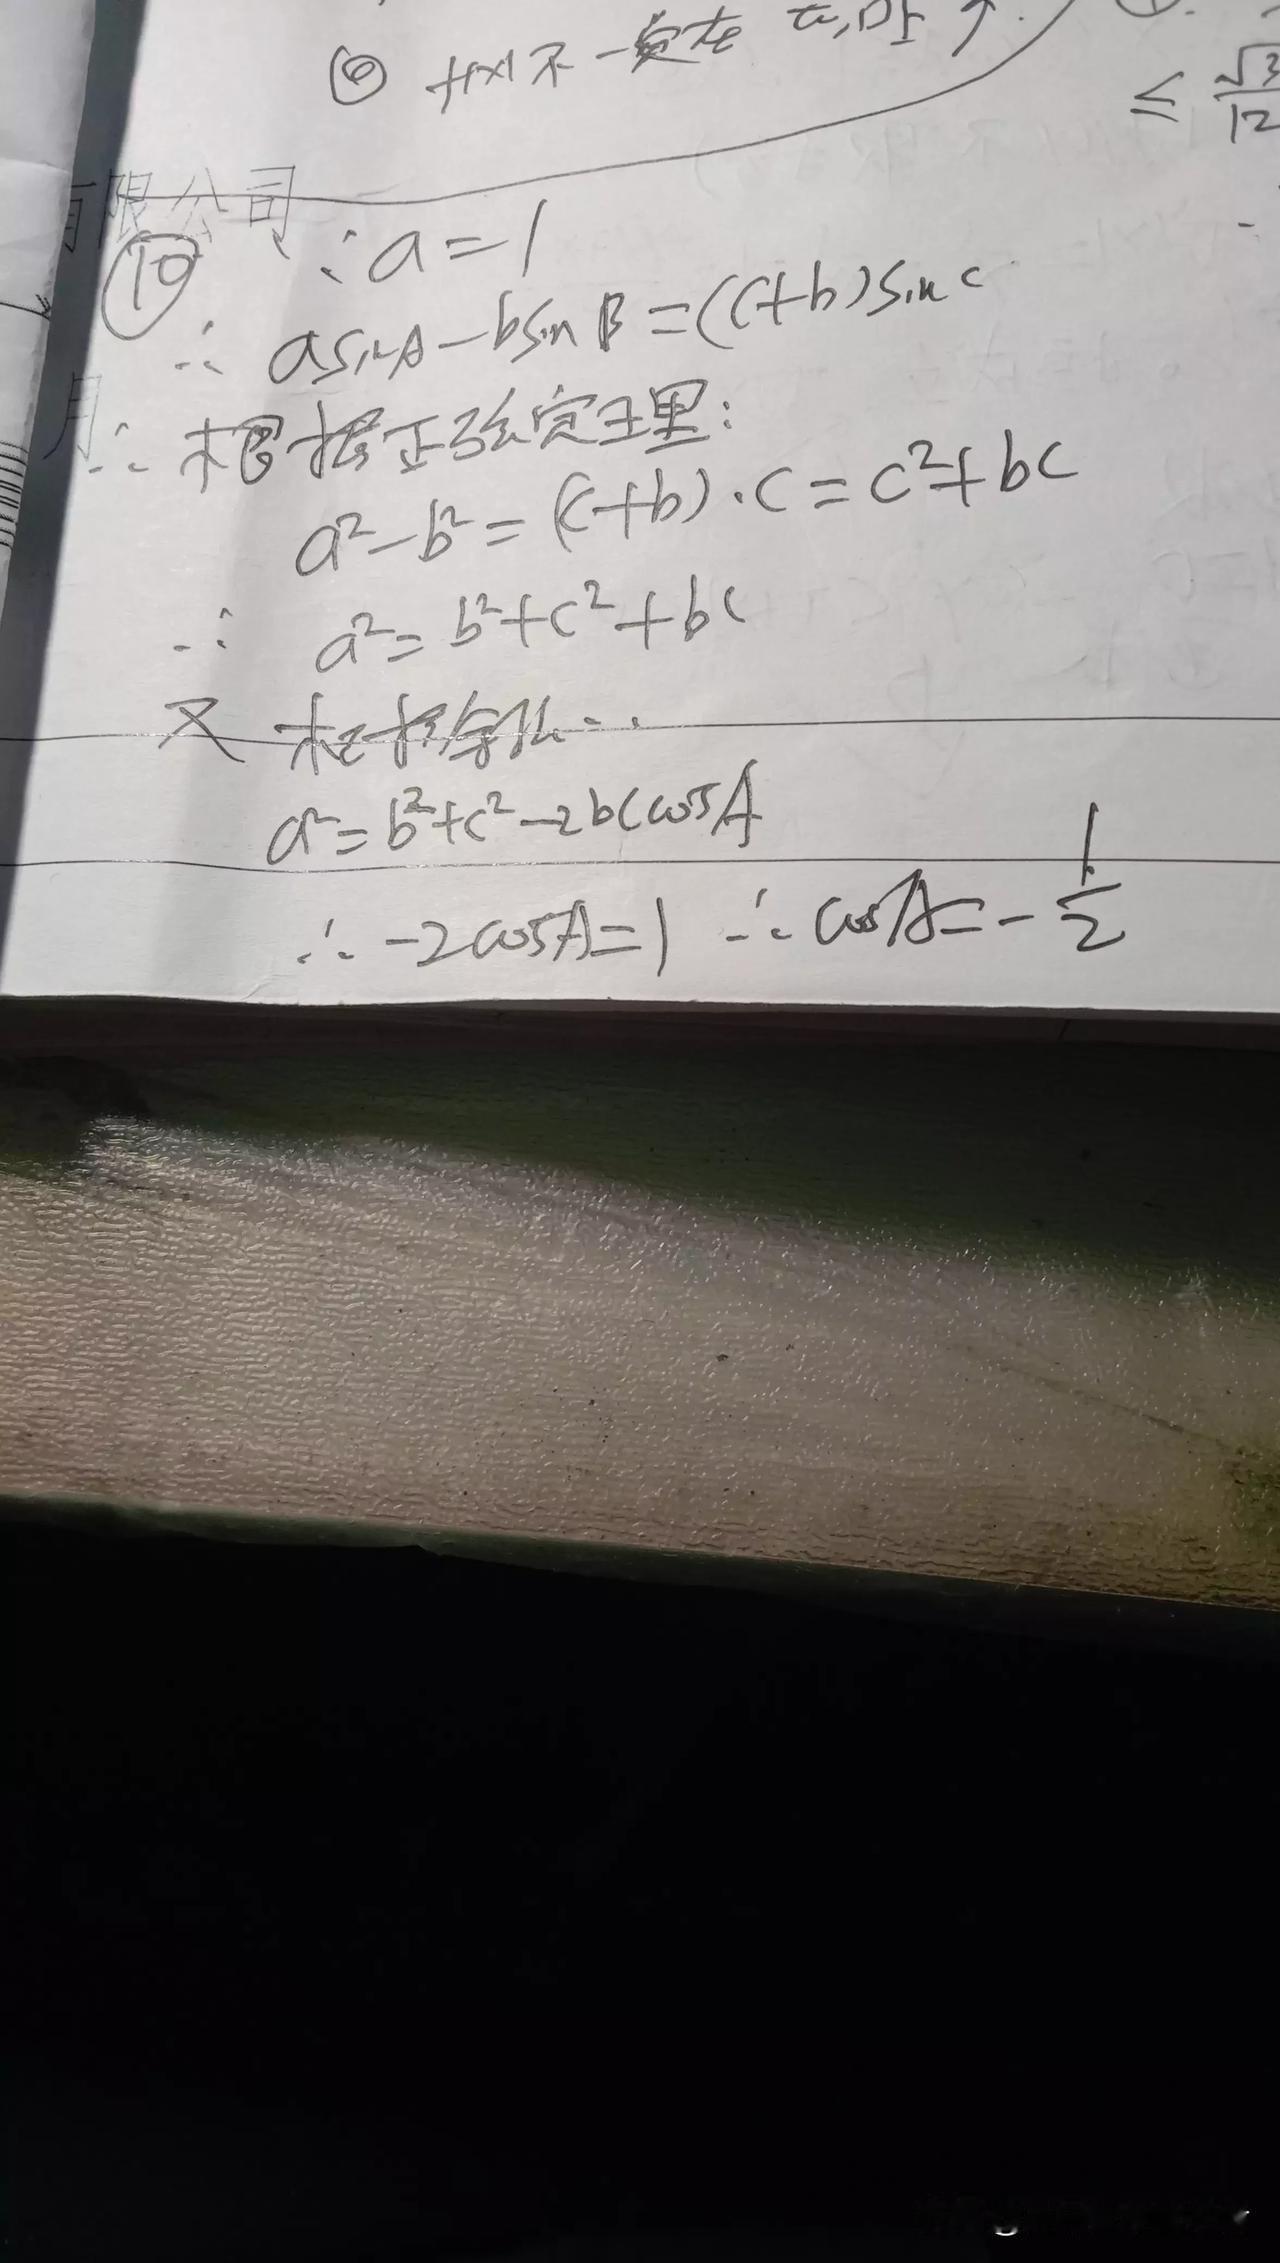 ⑥ f(x)不一定在 上↑.
≤ √3/12
有限公司
⑩ ∵a=1
∴ asinA-bsinB=(c+b)sinc
月
∴ 根据正弦定理:
a²-b²=(c+b)·c=c²+bc
∴ a²=b²+c²+bc
又 根据余弦…
a²=b²+c²-2bccosA
∴ -2cosA=1 ∴ cosA=-1/2